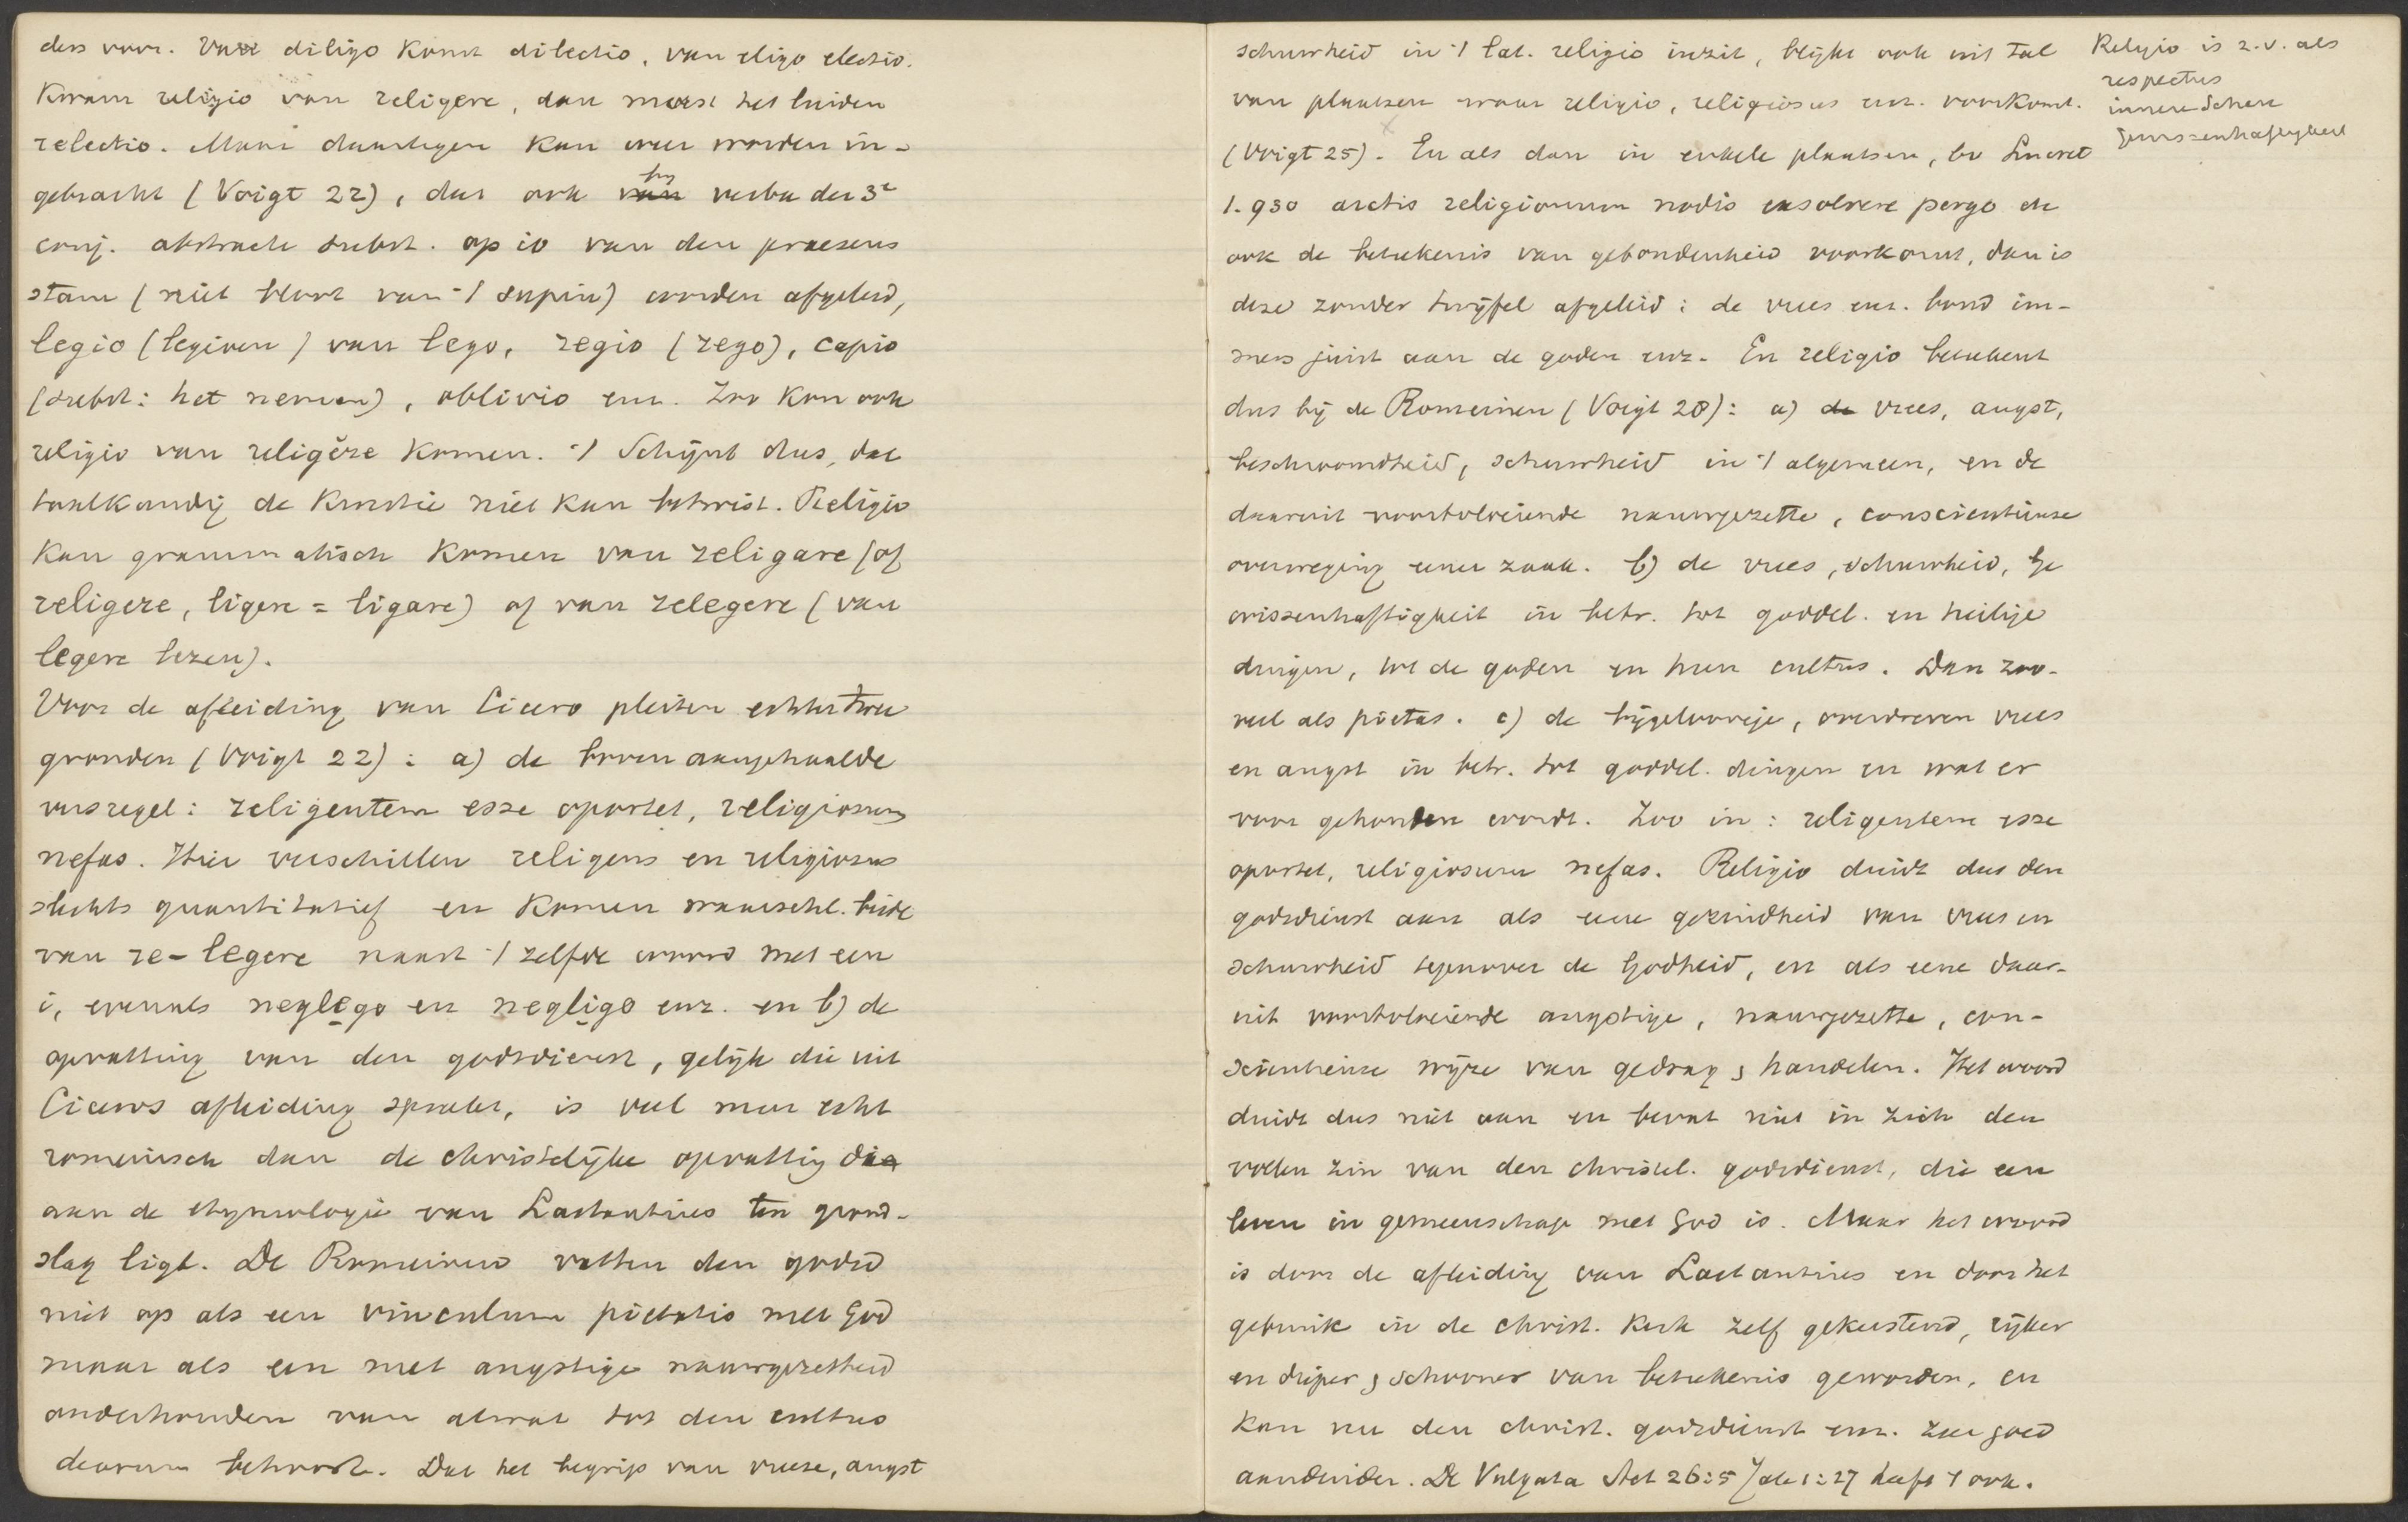 ders voor. Van diligo komt dilectio, van eligo electio.
Kwam religio van religere, dan moest het luiden
relectio. Maar daartegen kan weer worden in-
gebracht (Voigt 22), dat ook by verba der 3e
conj. abstracte subst. op io van den praesens
stam (niet bloot van 't supin) worden afgeleid,
legio (legioen) van lego, regio (rego), capio
(subst: het nemen), oblivio enz. Zoo kon ook
religio van religĕre komen. 't Schijnt dus, dat
taalkundig de kwestie niet kan beslist. Religio
kan grammatisch komen van religare (of
religere, ligere = ligare) of van relegere (van
legere lezen).
Voor de afleiding van Cicero pleiten echter twee
gronden (Voigt 22): a) de boven aangehaalde
versregel: religentem esse oportet, religiosum
nefas. Hier verschillen religens en religiosus
slechts quantitatief en komen waarschl. beide
van re-legere naast 't zelfde woord met een
i, evenals neglego en negligo enz. en b) de
opvatting van den godsdienst, gelijk die uit
Cicero's afleiding spreekt, is veel meer echt
romeinsch dan de christelijke opvatting die
aan de etymologie van Lactantius ten grond-
slag ligt. De Romeinen vatten den godsd
niet op als een vinculum pietatis met God
maar als een met angstige nauwgezetheid
onderhouden van alwat tot den cultus
deorum behoorde. Dat het begrip van vreeze, angst
schuwheid in 't lat. religio inzit, blijkt ook uit tal
van plaatsen waar religio, religiosus enz. voorkomt.
(Voigt 25). En als dan in enkele plaatsen, bv Lucret
1.930 arctis religionum nodis exsolvere pergo de
ook de beteekenis van gebondenheid voorkomt, dan is
deze zonder twijfel afgeleid: de vrees enz. bond im-
mers juist aan de goden enz. En religio beteekent
dus bij de Romeinen (Voigt 28): a) de vrees, angst,
beschroomdheid, schuwheid in 't algemeen, en de
daaruit voortvloeiende nauwgezette, conscientieuse
overweging eener zaak. b) de vrees, schuwheid, Ge
wissenhaftigkeit in betr. tot goddel. en heilige
dingen, tot de goden en hun cultus. Dan zoo-
veel als pietas. c) de bijgeloovige, overdreven vrees
en angst in betr. tot goddel. dingen en wat er
voor gehouden wordt. Zoo in: religentem esse
oportet, religiosum nefas. Religio duidt dus den
godsdienst aan als eene gezindheid van vrees en
schuwheid tegenover de Godheid, en als eene daar-
uit voortvloeiende angstige, nauwgezette, con-
scientieuse wijze van gedrag & handelen. Het woord
duidt dus niet aan en bevat niet in zich den
vollen zin van den christel. godsdienst, die een
leven in gemeenschap met God is. Maar het woord
is door de afleiding van Lactantius en door het
gebruik in de christ. kerk zelf gekerstend, rijker
en dieper & schooner van beteekenis geworden, en
kan nu den christ. godsdienst enz. zeer goed
aanduiden. De Vulgata Act 26:5 Jak 1:27 heeft 't ook.
Religio is z.v. als
respectus
innere Scheu
Gewissenhaftigkeit